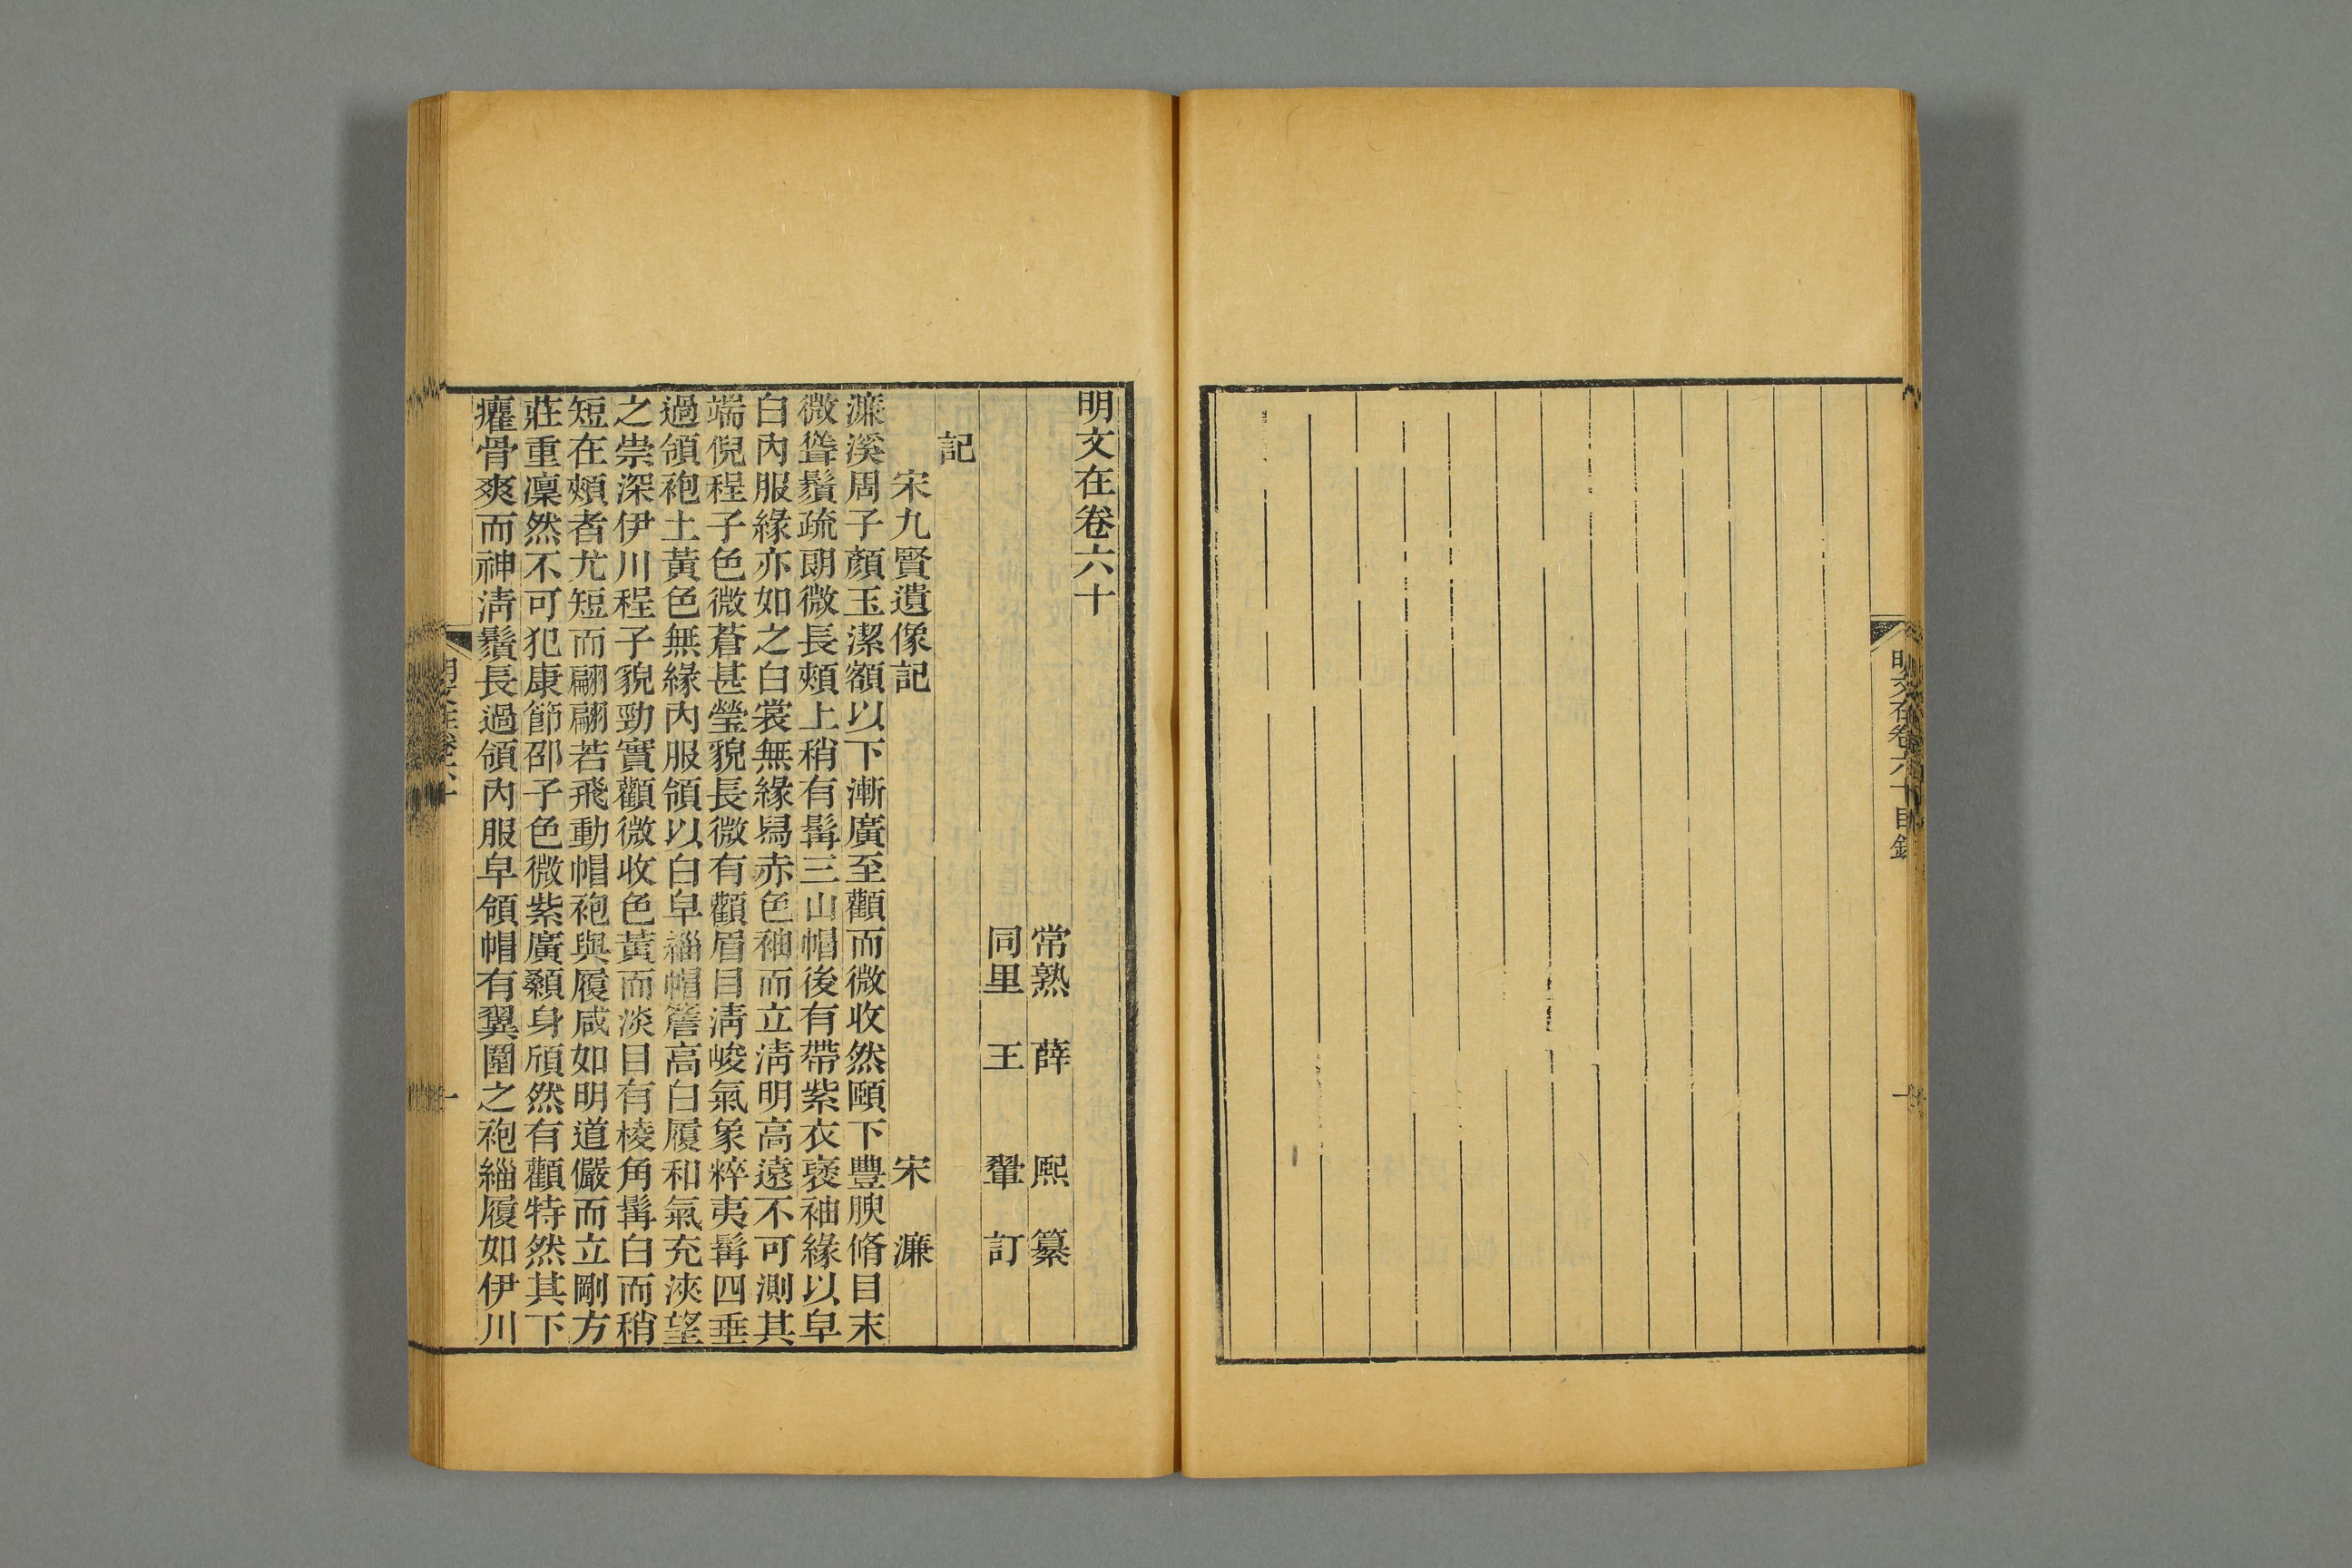 明文在卷六十目錄
一
明文在卷六十
常熟 薛 熙 纂
同里 王 鞏 訂
記
宋九賢遺像記 宋 濂
濂溪周子顏玉潔額以下漸廣至顴而微收然頤下豐腴脩目末
微聳鬚疏朗微長頰上稍有髯三山帽後有帶紫衣褒袖緣以皁
白內服緣亦如之白裳無緣舄赤色袖而立清明高遠不可測其
端倪程子色微蒼甚瑩貌長微有顴眉目清峻氣象粹夷髯四垂
過領袍土黃色無緣內服領以白皁緇帽簷高白履和氣充浹望
之崇深伊川程子貌勁實顴微收色黃而淡目有棱角髯白而稍
短在頰者尤短而翩翩若飛動帽袍與履咸如明道儼而立剛方
莊重凜然不可犯康節邵子色微紫廣顙身頎然有顴特然其下
癯骨爽而神清鬚長過領內服皁領帽有翼圍之袍緇履如伊川
明文在卷六十
一